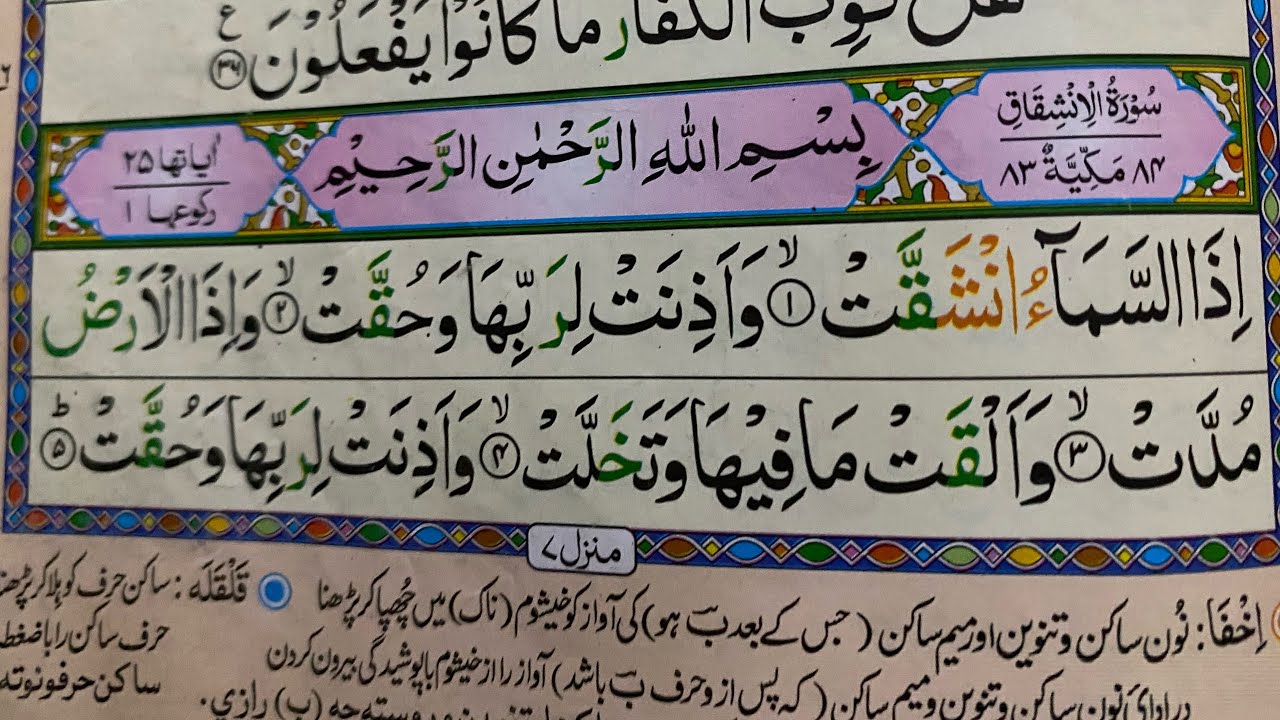 هَلْ ثُوِّبَ الْكُفَّارُ مَا كَانُوْا يَفْعَلُوْنَ ۳۶ ع
سُوْرَةُ الْاِنْشِقَاقِ
۸۴ مَكِّيَّةٌ ۸۳
بِسْمِ اللهِ الرَّحْمٰنِ الرَّحِيْمِ
اٰیاتها ۲۵
رکوعها ۱
اِذَا السَّمَآءُ انْشَقَّتْ ۙ۱ وَاَذِنَتْ لِرَبِّهَا وَحُقَّتْ ۙ۲ وَاِذَا الْاَرْضُ
مُدَّتْ ۙ۳ وَاَلْقَتْ مَا فِيْهَا وَتَخَلَّتْ ۙ۴ وَاَذِنَتْ لِرَبِّهَا وَحُقَّتْ ؕ۵
منزل ۷
اِخْفَا: نُون ساکن و تنوین اور میم ساکن (جس کے بعد ب ہو) کی آواز کو خیشوم (ناک) میں چُھپا کر پڑھنا
در ادائ نون ساکن و تنوین و میم ساکن (که پس از و حرف ب باشد) آواز را از خیشوم با پوشیدگی بیرون کردن
قَلْقَلَه: ساکن حرف کو ہلا کر پڑھنا
حرف ساکن را با ضغط
ساکن حرفونو ته